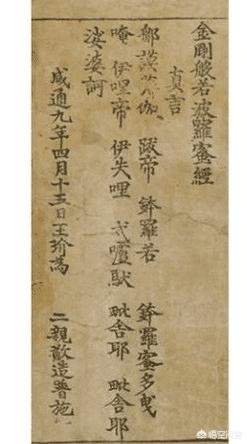 金剛般若波羅蜜經
真言
那謨婆伽 跋帝 鉢羅若 鉢羅蜜多曳
唵 伊哩帝 伊失哩 戍嚧馱 毗舍耶 毗舍耶
娑婆訶
咸通九年四月十五日王玠爲 二親敬造普施
悟空问答